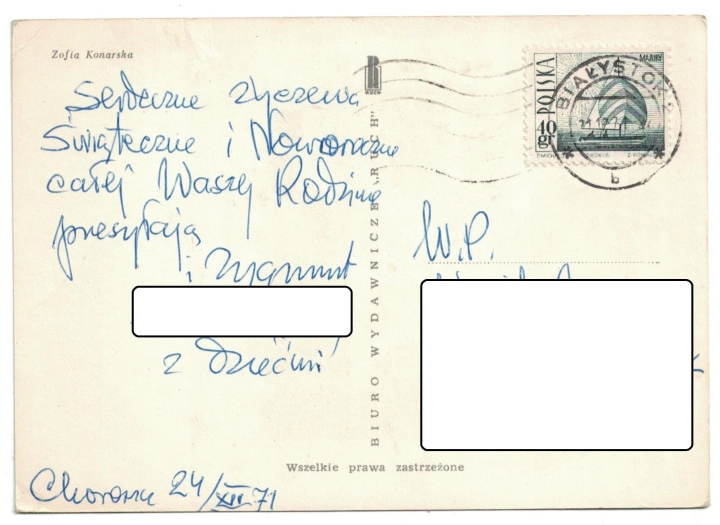 Zofia Konarska
RUCH
Serdeczne życzenia
Świąteczne i Noworoczne
całej Waszej Rodzinie
przesyłają
i Zygmunt
z Dziećmi
Choroszcz 24/XII 71
BIURO WYDAWNICZE „RUCH"
Wszelkie prawa zastrzeżone
POLSKA
40 gr
BIAŁYSTOK 2
b
W.P.